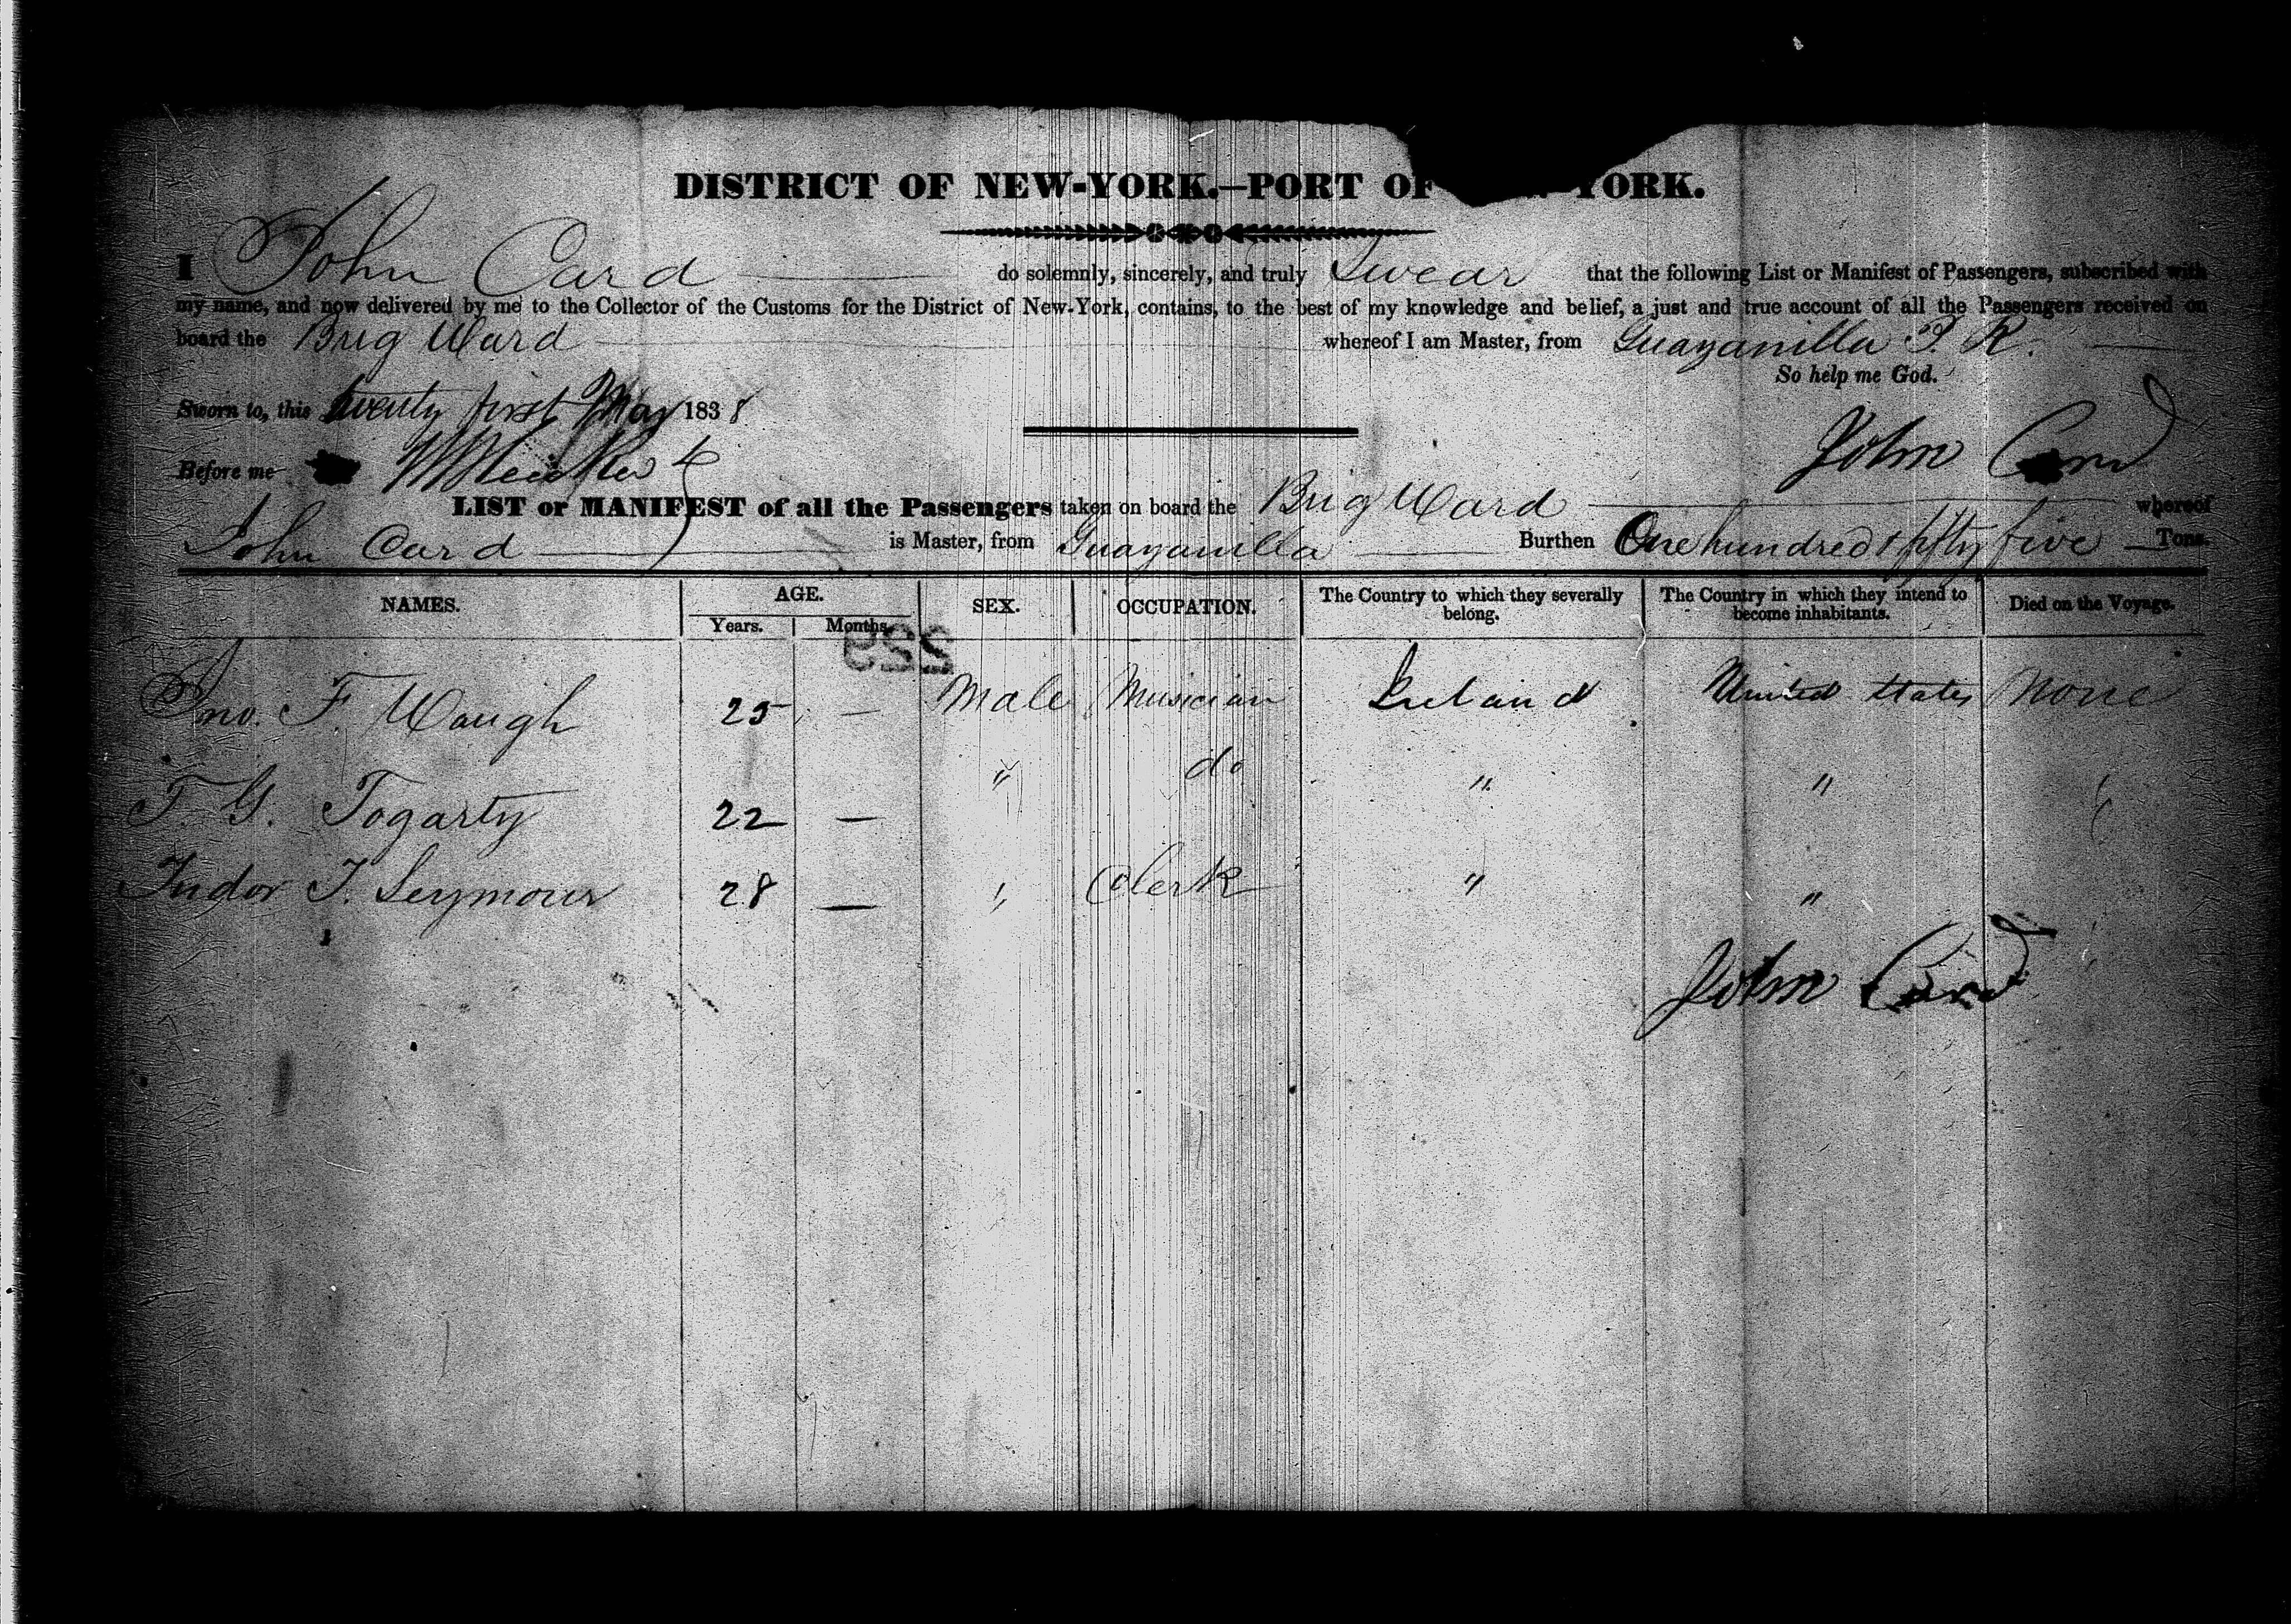 DISTRICT OF NEW-YORK.—PORT OF YORK.
I John Card do solemnly, sincerely, and truly Swear that the following List or Manifest of Passengers, subscribed with
my name, and now delivered by me to the Collector of the Customs for the District of New-York, contains, to the best of my knowledge and belief, a just and true account of all the Passengers received on
board the Brig Ward whereof I am Master, from Guayanilla P. R.
So help me God.
Sworn to, this twenty first May 1838
John Card
Before me
LIST or MANIFEST of all the Passengers taken on board the Brig Ward whereof
John Card is Master, from Guayanilla Burthen One hundred & fifty five Tons.
NAMES. AGE. SEX. OCCUPATION. The Country to which they severally belong. The Country in which they intend to become inhabitants. Died on the Voyage.
Years. Months.
229
Jno. F. Waugh 25 — Male Musician Ireland United States None
T. G. Fogarty 22 — " do " "
Tudor T. Seymour 28 — " Clerk " "
John Card